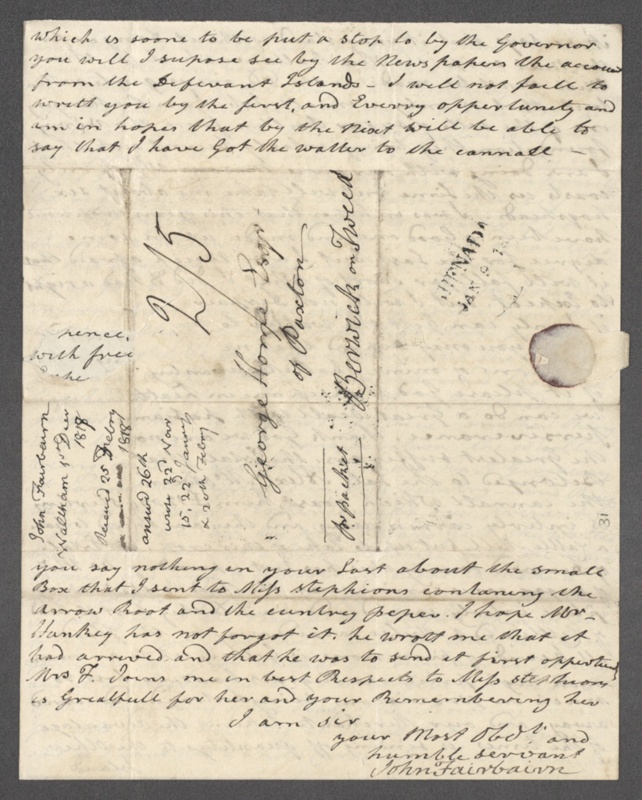 which is soone to be put a stop to by the Governor
you will I supose see by the News papers the accou
from the Defevant Islands - I will not faill to
writt you by the first, and Everry oppertunety and
am in hopes that by the Next will be able to
say that I have Got the watter to the cannall -
2/5
George Home Esqr
of Paxton
Berwick on Tweed
pr packet
GRENADA
JAN 9 18
hence,
with free
John Fairbairn
Waltham 15 Decr
1817
Received 25 Febry
1818
answd 26th
wrote 22d Novr
15, 22d Janry
& 20th Febry
31
you say nothing in your Last about the small
Box that I sent to Miss stephions contaning the
arrow Root and the cuntrey peper. I hope Mr
Hankey has not forgot it. he wrott me that it
had arrived and that he was to send it first oppertun
Mrs F. Joins me in best Respects to Miss stephions
is Greatfull for her and your Remembering her
I am sir
your Most Obdt and
humble servant
John Fairbairn